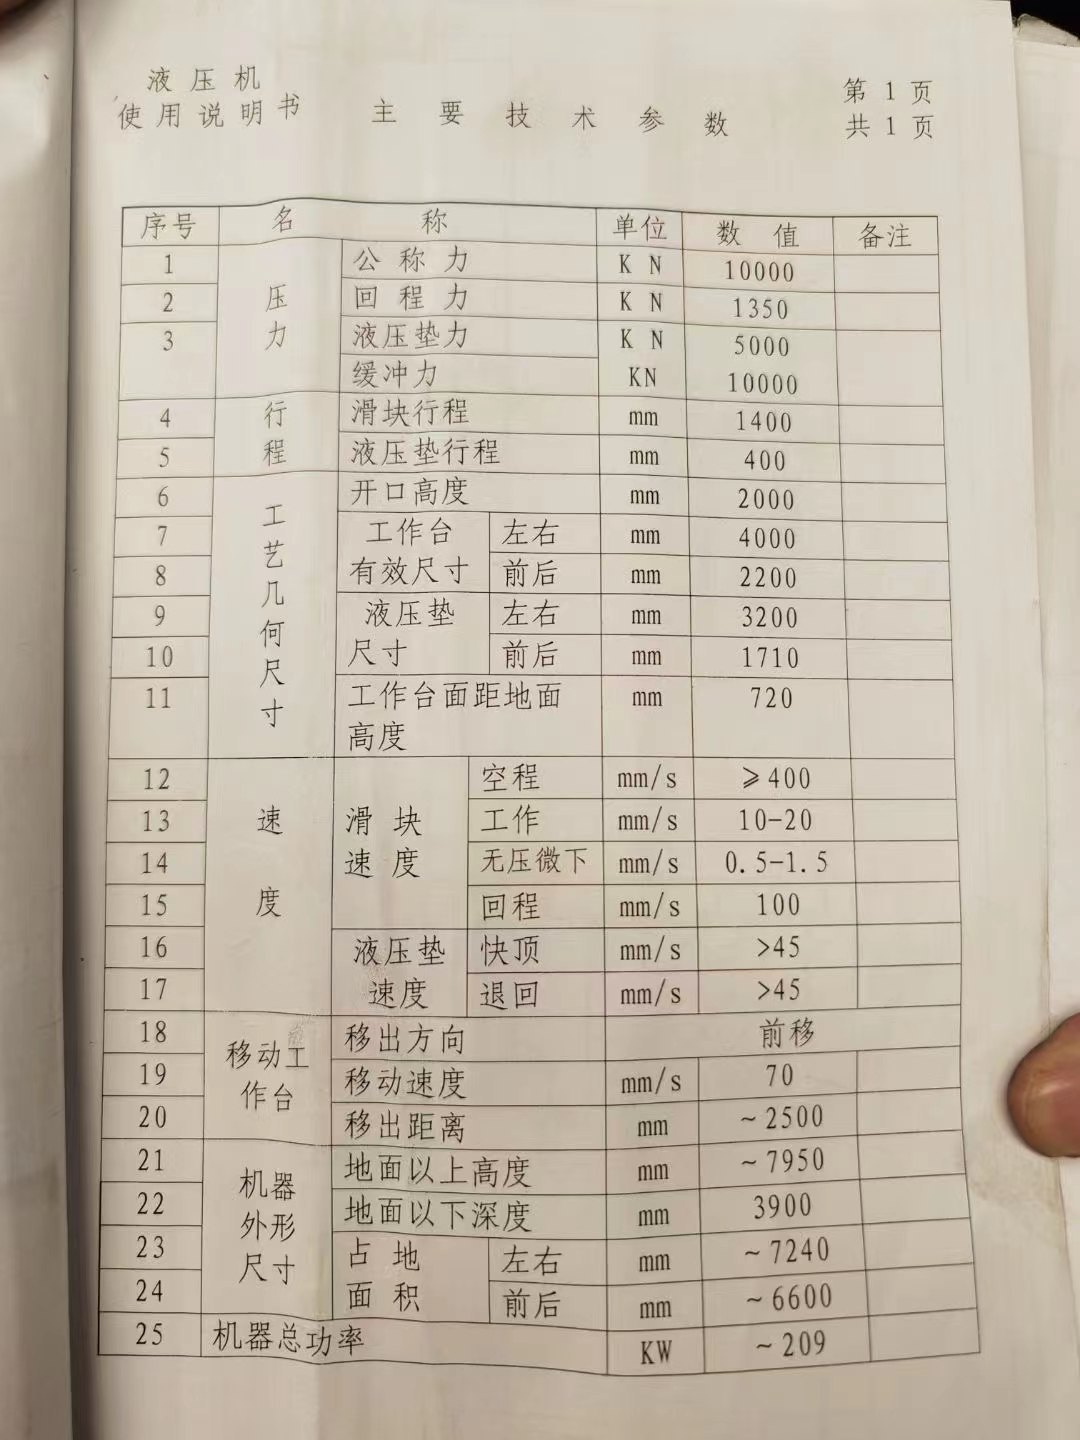 液压机
使用说明书 主要技术参数
第 1 页
共 1 页
序号 名称 单位 数值 备注
1 压力 公称力 KN 10000
2 回程力 KN 1350
3 液压垫力 KN 5000
缓冲力 KN 10000
4 行程 滑块行程 mm 1400
5 液压垫行程 mm 400
6 工艺几何尺寸 开口高度 mm 2000
7 工作台有效尺寸 左右 mm 4000
8 前后 mm 2200
9 液压垫尺寸 左右 mm 3200
10 前后 mm 1710
11 工作台面距地面高度 mm 720
12 速度 滑块速度 空程 mm/s ≥400
13 工作 mm/s 10-20
14 无压微下 mm/s 0.5-1.5
15 回程 mm/s 100
16 液压垫速度 快顶 mm/s >45
17 退回 mm/s >45
18 移动工作台 移出方向 前移
19 移动速度 mm/s 70
20 移出距离 mm ~2500
21 机器外形尺寸 地面以上高度 mm ~7950
22 地面以下深度 mm 3900
23 占地面积 左右 mm ~7240
24 前后 mm ~6600
25 机器总功率 KW ~209